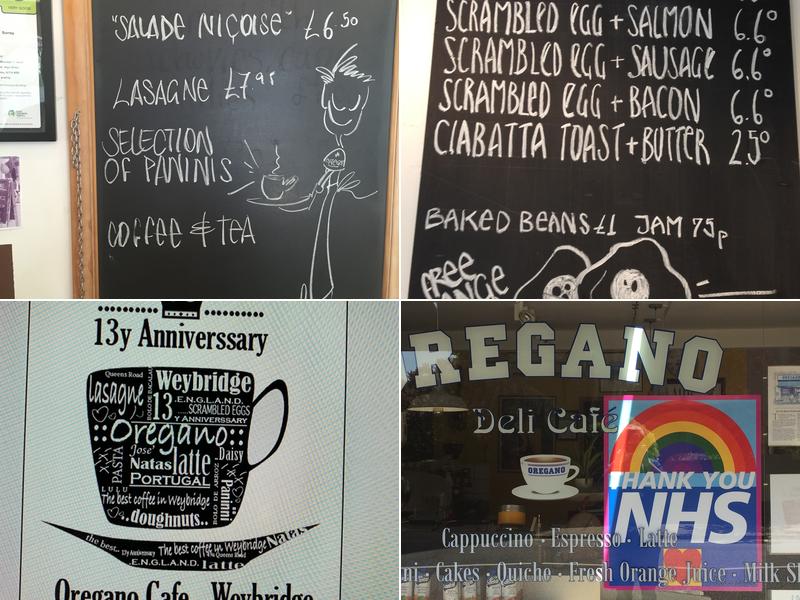 "SALADE NIÇOISE" £6.50
LASAGNE £7.95
SELECTION
OF PANINIS
COFFEE & TEA
SCRAMBLED EGG + SALMON 6.6°
SCRAMBLED EGG + SAUSAGE 6.6°
SCRAMBLED EGG + BACON 6.6°
CIABATTA TOAST + BUTTER 2.5°
BAKED BEANS £1 JAM 75p
FREE
RANGE
13y Anniverssary
Queens Road
lasagne
BOLO DE BACALAU
Weybridge
13
.E.N.G.L.A.N.D.
...SCRAMBLED EGGS
Y ANNIVERSSARY
::Oregano::
PASTA
José
Natas
latte
..Daisy
PORTUGAL
LULU
BOLO DE ARROZ
Paninni
The best coffee in Weybridge
..doughnuts..
the best..
13y Anniverssary
The best coffee in Weybridge
Natas
Queens Road
.E.N.G.L.A.N.D.
latte
Oregano Cafe Weybridge
OREGANO
Deli Café
OREGANO
THANK YOU
NHS
Cappuccino · Espresso · Latte
ni · Cakes · Quiche · Fresh Orange Juice · Milk Sh